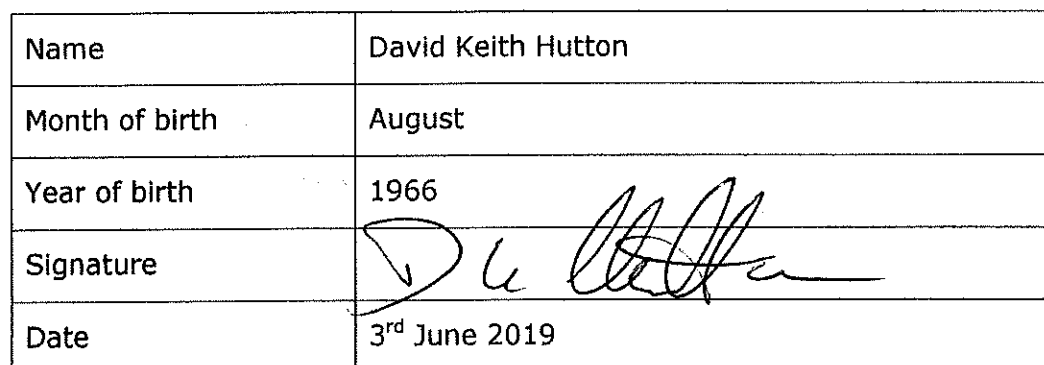 Name David Keith Hutton
Month of birth August
Year of birth 1966
Signature D K Hutton
Date 3rd June 2019